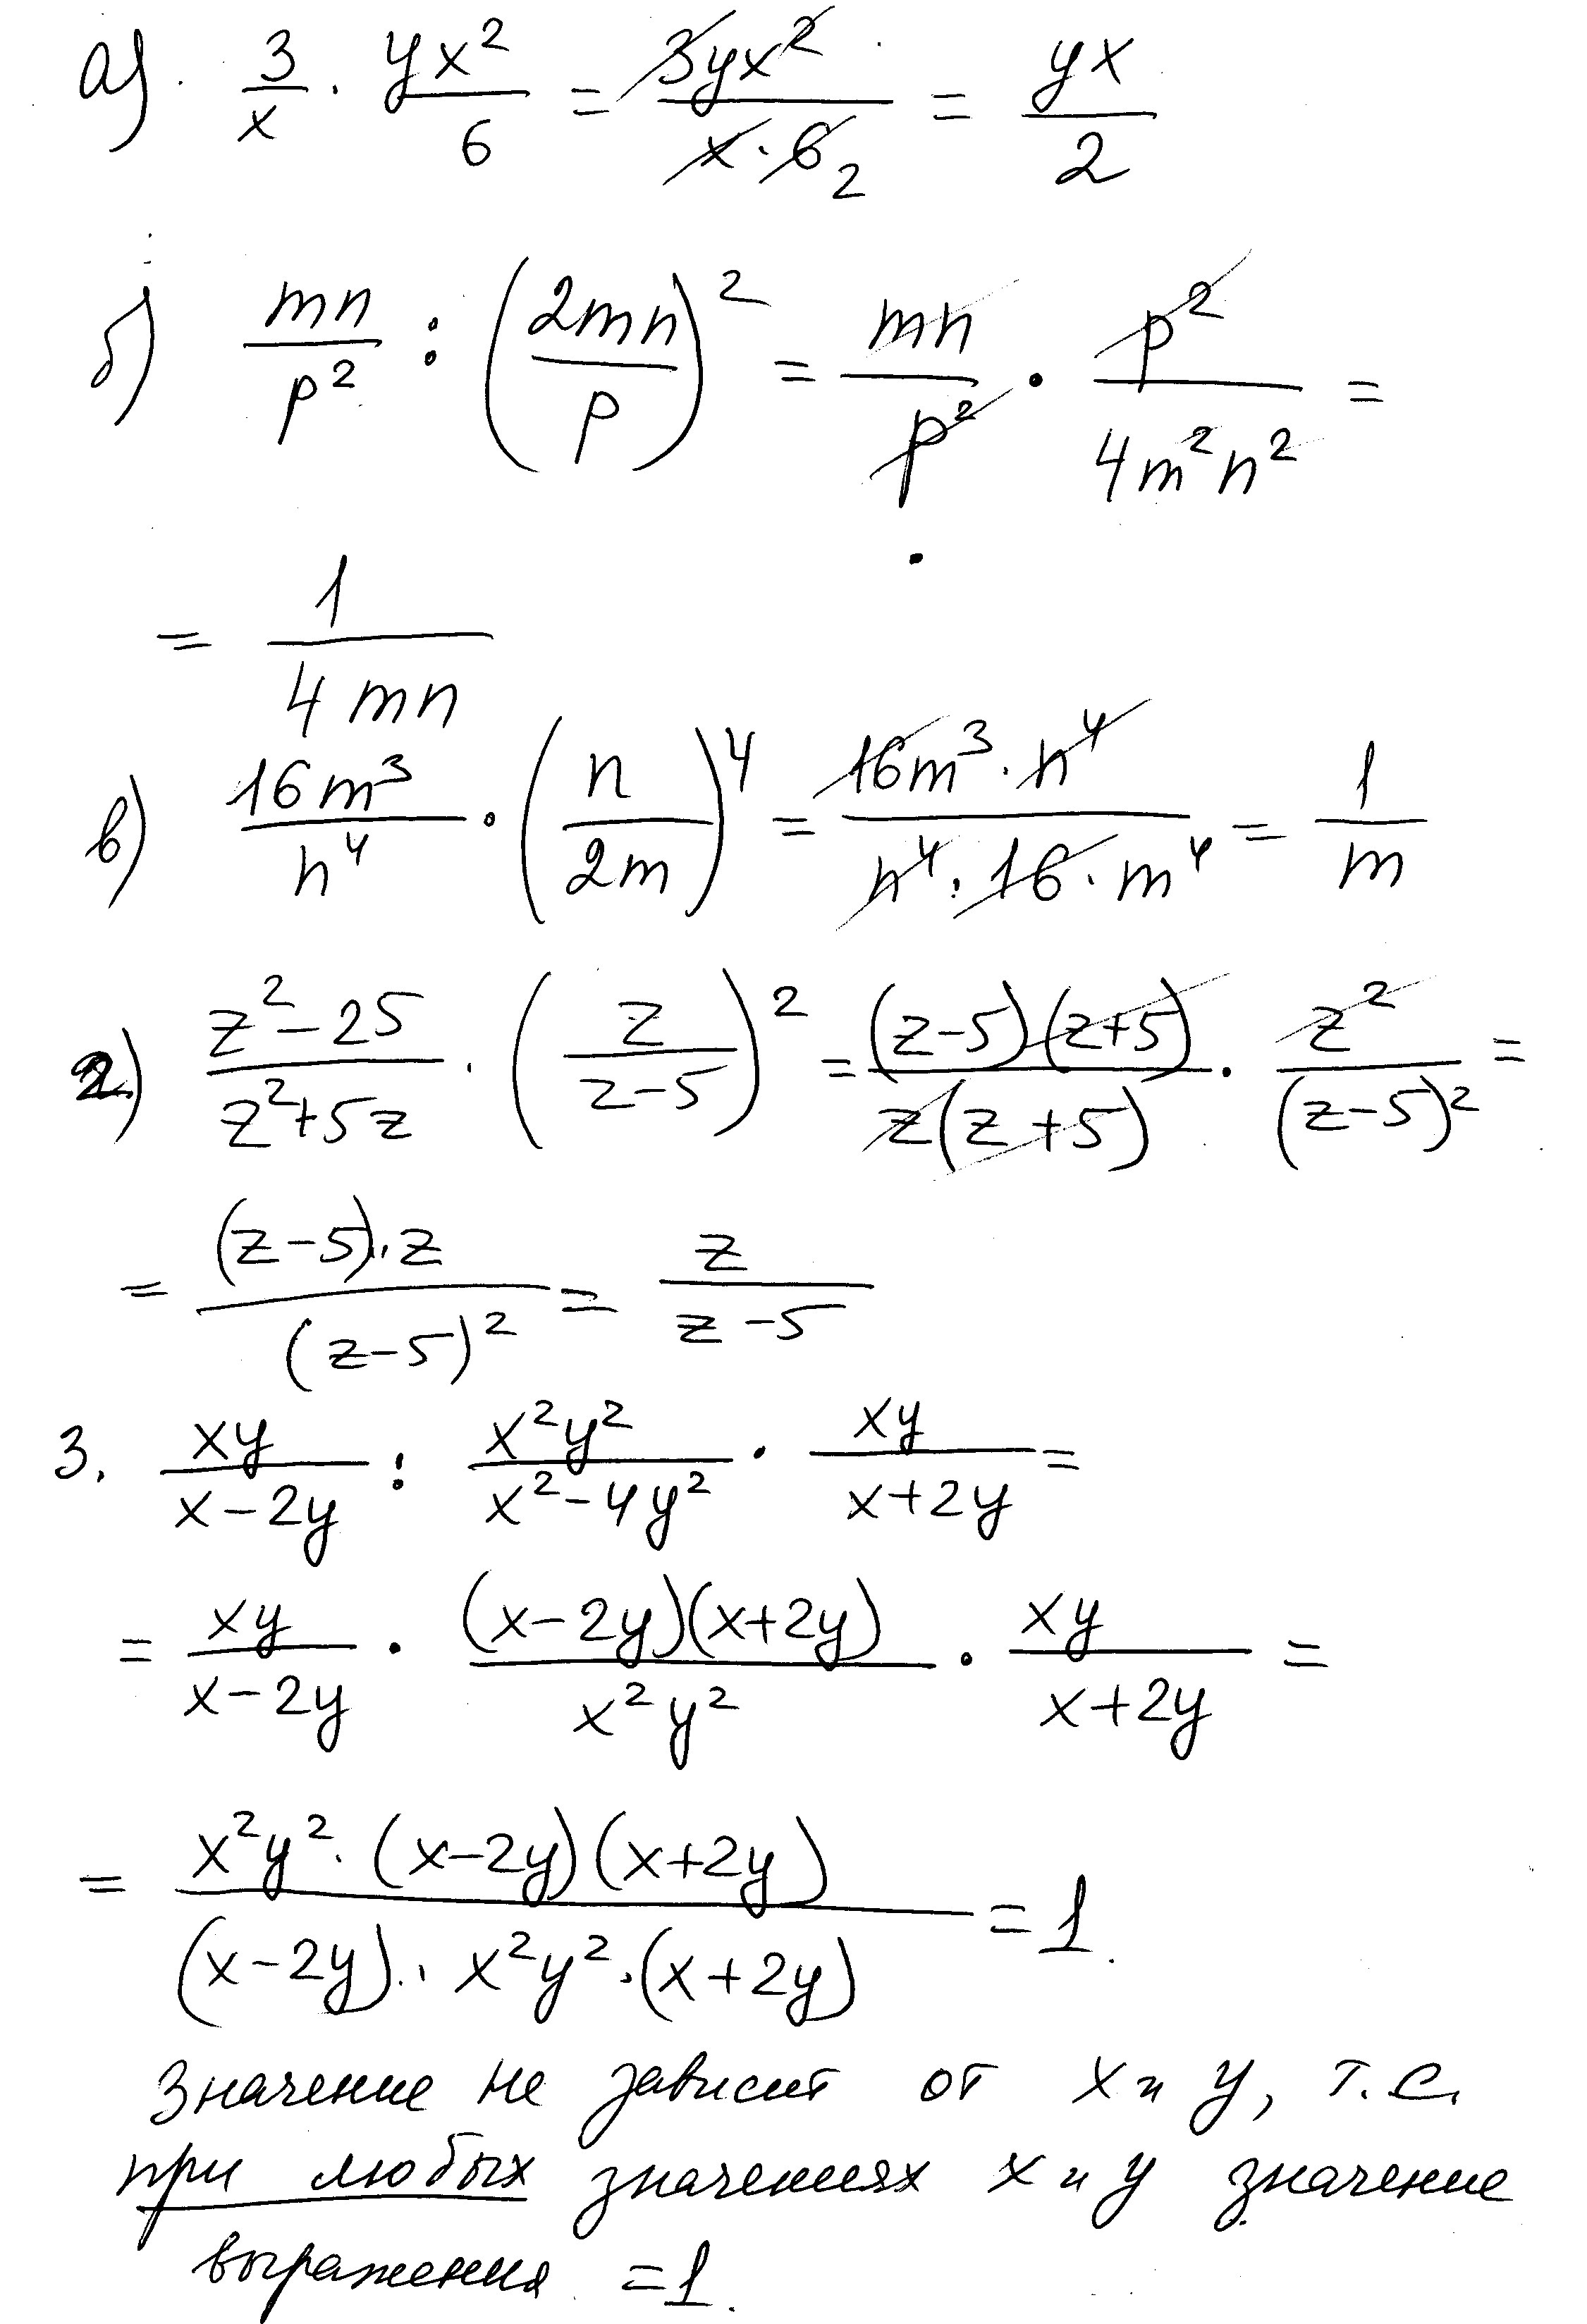 а) 3/x · yx²/6 = 3yx²/(x·6₂) = yx/2
б) mn/p² : (2mn/p)² = mn/p² · p²/(4m²n²) =
= 1/(4mn)
в) 16m³/n⁴ · (n/2m)⁴ = (16m³·n⁴)/(n⁴·16·m⁴) = 1/m
г) (z²-25)/(z²+5z) · (z/(z-5))² = ((z-5)(z+5))/(z(z+5)) · z²/(z-5)² =
= ((z-5)·z)/(z-5)² = z/(z-5)
3. xy/(x-2y) : x²y²/(x²-4y²) · xy/(x+2y) =
= xy/(x-2y) · ((x-2y)(x+2y))/(x²y²) · xy/(x+2y) =
= (x²y²·(x-2y)(x+2y))/((x-2y)·x²y²·(x+2y)) = 1.
Значение не зависит от x и y, т.е.
при любых значениях x и y значение
выражения =1.